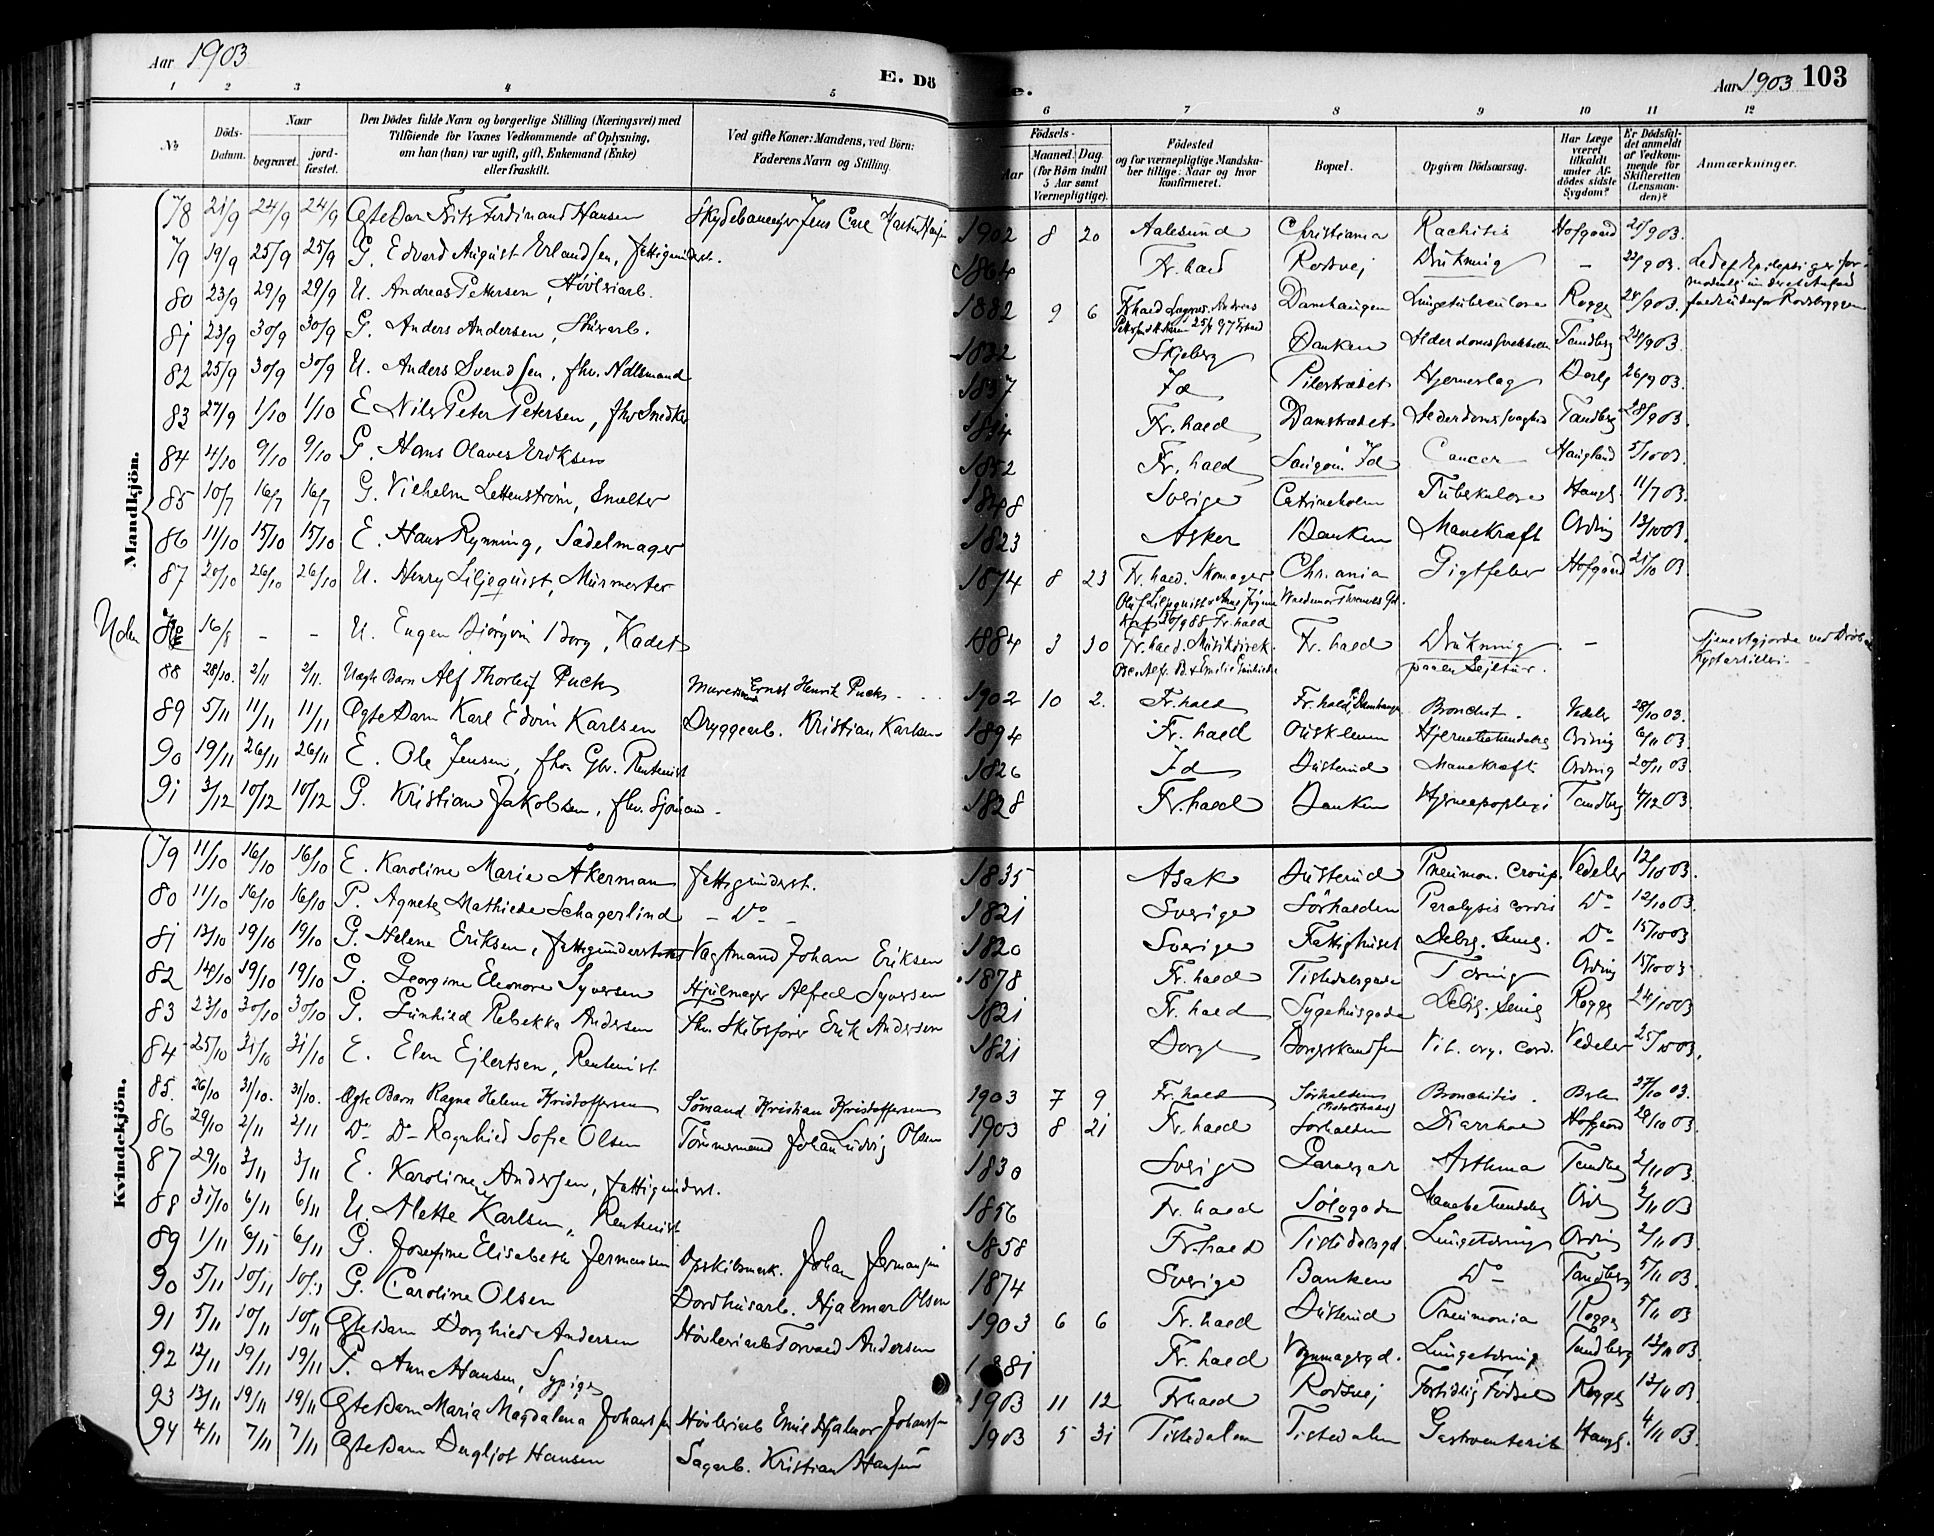 Aar 1903
E. Dö
e.
Aar 1903 103
1 2 3 4 5 6 7 8 9 10 11 12
No.
Döds-Datum.
Naar begravet. jord-fæstet.
Den Dödes fulde Navn og borgerlige Stilling (Næringsvei) med Tilföiende for Voxnes Vedkommende af Oplysning, om han (hun) var ugift, gift, Enkemand (Enke) eller fraskilt.
Ved gifte Koner: Mandens, ved Börn: Faderens Navn og Stilling.
Födsels-Aar Maaned. Dag. (for Börn indtil 5 Aar samt Værnepligtige).
Födested og for værnepligtige Mandskaber tillige: Naar og hvor konfirmeret.
Bopæl.
Opgiven Dödsaarsag.
Har Læge været tilkaldt under Afdödes sidste Sygdom?
Er Dödsfaldet anmeldt af Vedkommende for Skifteretten (Lensmanden)?
Anmærkninger.
Mandkjön.
78 21/9 24/9 24/9 Ægte Barn Fritz Ferdinand Hansen Jens Carl 1902 8 20 Aalesund Christiania Rachitis Hofgaard 21/9 03.
79 19/9 25/9 25/9 G. Edvard August Erlandsen, fattigunderst. 1864 Fr.hald Rødsvej Drukning – 22/9 03.
80 23/9 29/9 29/9 U. Andreas Pettersen, Høvleriarb. 1882 9 6 Fr.hald Damhaugen Lungetuberculose Rogge 24/9 03.
81 23/9 30/9 30/9 G. Anders Andersen, 1822 Skjeberg Banken Tandberg 24/9 03.
82 25/9 30/9 30/9 U. Anders Svendsen, fhv. 1837 Id Pilestrædet Hjerneslag 26/9 03.
83 27/9 1/10 1/10 E Nils Peter Petersen, fhv Smed Fr.hald Damstrædet Tandberg 28/9 03.
84 4/10 9/10 9/10 G. Hans Olaves Eriksen 1852 Fr.hald Id Cancer Haugland 5/10 03.
85 10/7 16/7 16/7 G. Vilhelm Lettenstrøm, Smelter 1848 Sverige Catrineholm Tuberkulose Haugl. 11/7 03.
86 11/10 15/10 15/10 E. Hans Rynning, Sadelmager 1823 Asker Banken Manekræft Ording 13/10 03.
87 20/10 26/10 26/10 U. Henry Liljequist, Murmester 1874 8 23 Fr.hald. Skomager Chr.ania Gigtfeber Hofgaard 21/10 03
16/8 – – U. Eugen Bjørgvin Borg, Kadet 1884 3 30 Fr.hald. Musikdirek. Fr.hald Drukning paa en Sejltur. – Tjenestgjorde ved
88 28/10. 2/11 2/11. Uægte Barn Alf Thorleif Puck Murersvend Ernst Henrik Puck 1902 10 2. Fr.hald Fr.hald, Damhaugen Bronchit. Vedeler 28/10 03.
89 5/11 11/11 11/11 Ægte Barn Karl Edvin Karlsen Bryggearb. Kristian Karlsen 1894 Fr.hald Ouskleven Hjernebetændelse Ording 6/11 03.
90 19/11 26/11 26/11 E. Ole Jensen, fhv. Gbr. Rentenist 1826 Id Busterud Manekræft Ording 20/11 03
91 3/12 10/12 10/12 G. Kristian Jakobsen, fhv. Sjömand. 1828 Fr.hald Banken Hjerneapoplexi Tandberg 4/12 03.
Kvindekjön.
79 11/10 16/10 16/10 E. Karoline Marie Åkerman fattigunderst. 1835 Asak Busterud Pneumon. croup. Vedeler 12/10 03.
80 11/10 16/10 16/10 P. Agnete Mathilde Schagerlind – Do – 1821 Sverige Sörhalden Paralysis cordis Do 12/10 03.
81 13/10 19/10 19/10 G. Helene Eriksen, fattigunderstøttet Vagtmand Johan Eriksen 1820 Sverige Fattighuset Debig. Senig. Do 15/10 03
82 14/10 19/10 19/10 G. Georgine Eleonore Syversen Hjulmager Alfred Syversen 1878 Fr.hald Tistedalsgade Tæring Ording 15/10 03
83 23/10 30/10 30/10 G. Gunhild Rebekka Andersen Fhv. Skibsfører Erik Andersen 1821 Fr.hald Sygehusgade Debig. Senig Rogge 24/10 03
84 25/10 31/10 31/10 E. Elen Ejlertsen, Rentenist 1821 Borge Vit. org. cord. Vedeler 25/10 03.
85. 26/10 31/10. 31/10. Ægte Barn Ragna Helene Kristoffersen Sömand Kristian Kristoffersen 1903 7 9 Fr.hald Sörhalden Bronchitis. 27/10 03.
86 29/10 2/11 2/11 Do Do Ragnhild Sofie Olsen Tömmermand Johan Ludvig Olsen 1903 8 21 Fr.hald Sörhalden Diarrhoe Hofgaard 29/10 03.
87 29/10 3/11 3/11 E. Karoline Andersen, fattigunderst. 1830 Sverige Asthma Tandberg 2/11 03.
88 31/10 6/11 6/11 U. Alette Karlsen, Rentenist 1856 Fr.hald Sølvgaden Mavebetændelse Ording 2/11 03
89 1/11 6/11 6/11 G. Josefine Elisabeth Jermansen Opskibsmesk. Johan Jermansen 1858 Fr.hald Tistedalsgd. Lungetæring Ording 2/11 03.
90 5/11 10/11 10/11 G. Caroline Olsen Bordhusarb. Hjalmar Olsen 1874 Sverige Banken Do Tandberg 5/11 03.
91 5/11 10/11 10/11 Ægte Barn Borghild Andersen Høvleriarb Torvald Andersen 1903 6 6 Fr.hald Busterud Pneumonia Rogge 5/11 03
92 12/11 19/11 19/11 P. Anne Hansen, Sypige 1881 Fr.hald Vognmagergd. Lungetæring Tandberg 12/11 03.
93 13/11 19/11 19/11 Ægte Barn Maria Magdalena Johansen Høvleriarb Emil Hjalmar Johansen 1903 11 12 Fr.hald Rødsvej Fortidlig Födsel Rogge 13/11 03
94 4/11 7/11 7/11 Ægte Barn Dagljot Hansen Sagarb. Kristian Hansen 1903 5 31 Tistedalen Tistedalen Gastroenterit Haugl. 4/11 03.